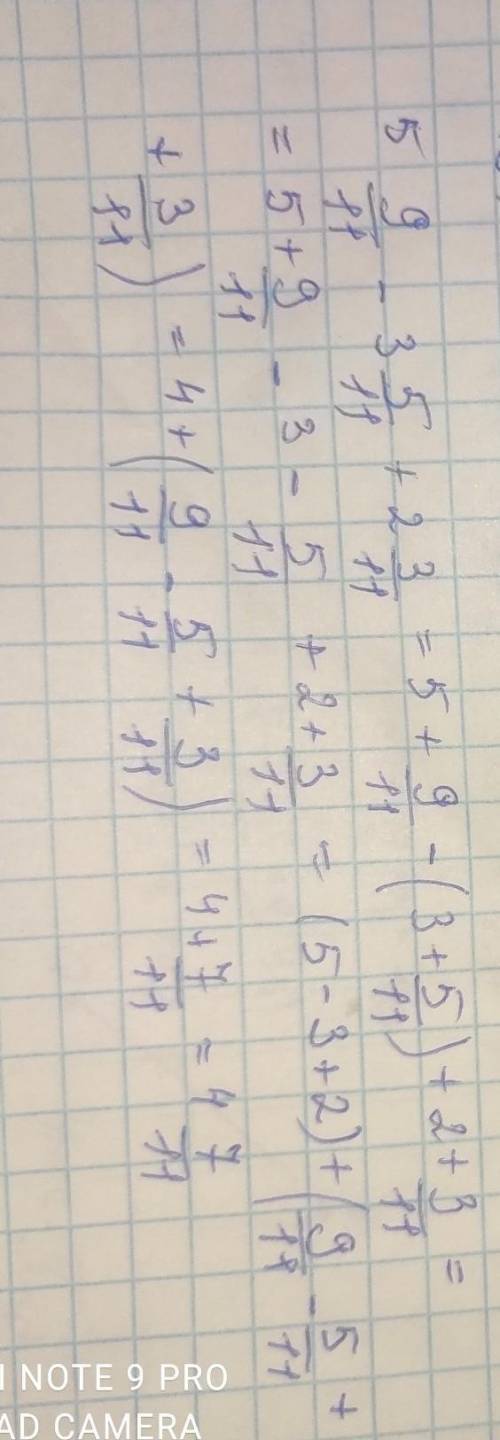 5 9/11 - 3 5/11 + 2 3/11 = 5 + 9/11 - (3 + 5/11) + 2 + 3/11 =
= 5 + 9/11 - 3 - 5/11 + 2 + 3/11 = (5 - 3 + 2) + (9/11 - 5/11 +
+ 3/11) = 4 + (9/11 - 5/11 + 3/11) = 4 + 7/11 = 4 7/11
NOTE 9 PRO
AD CAMERA